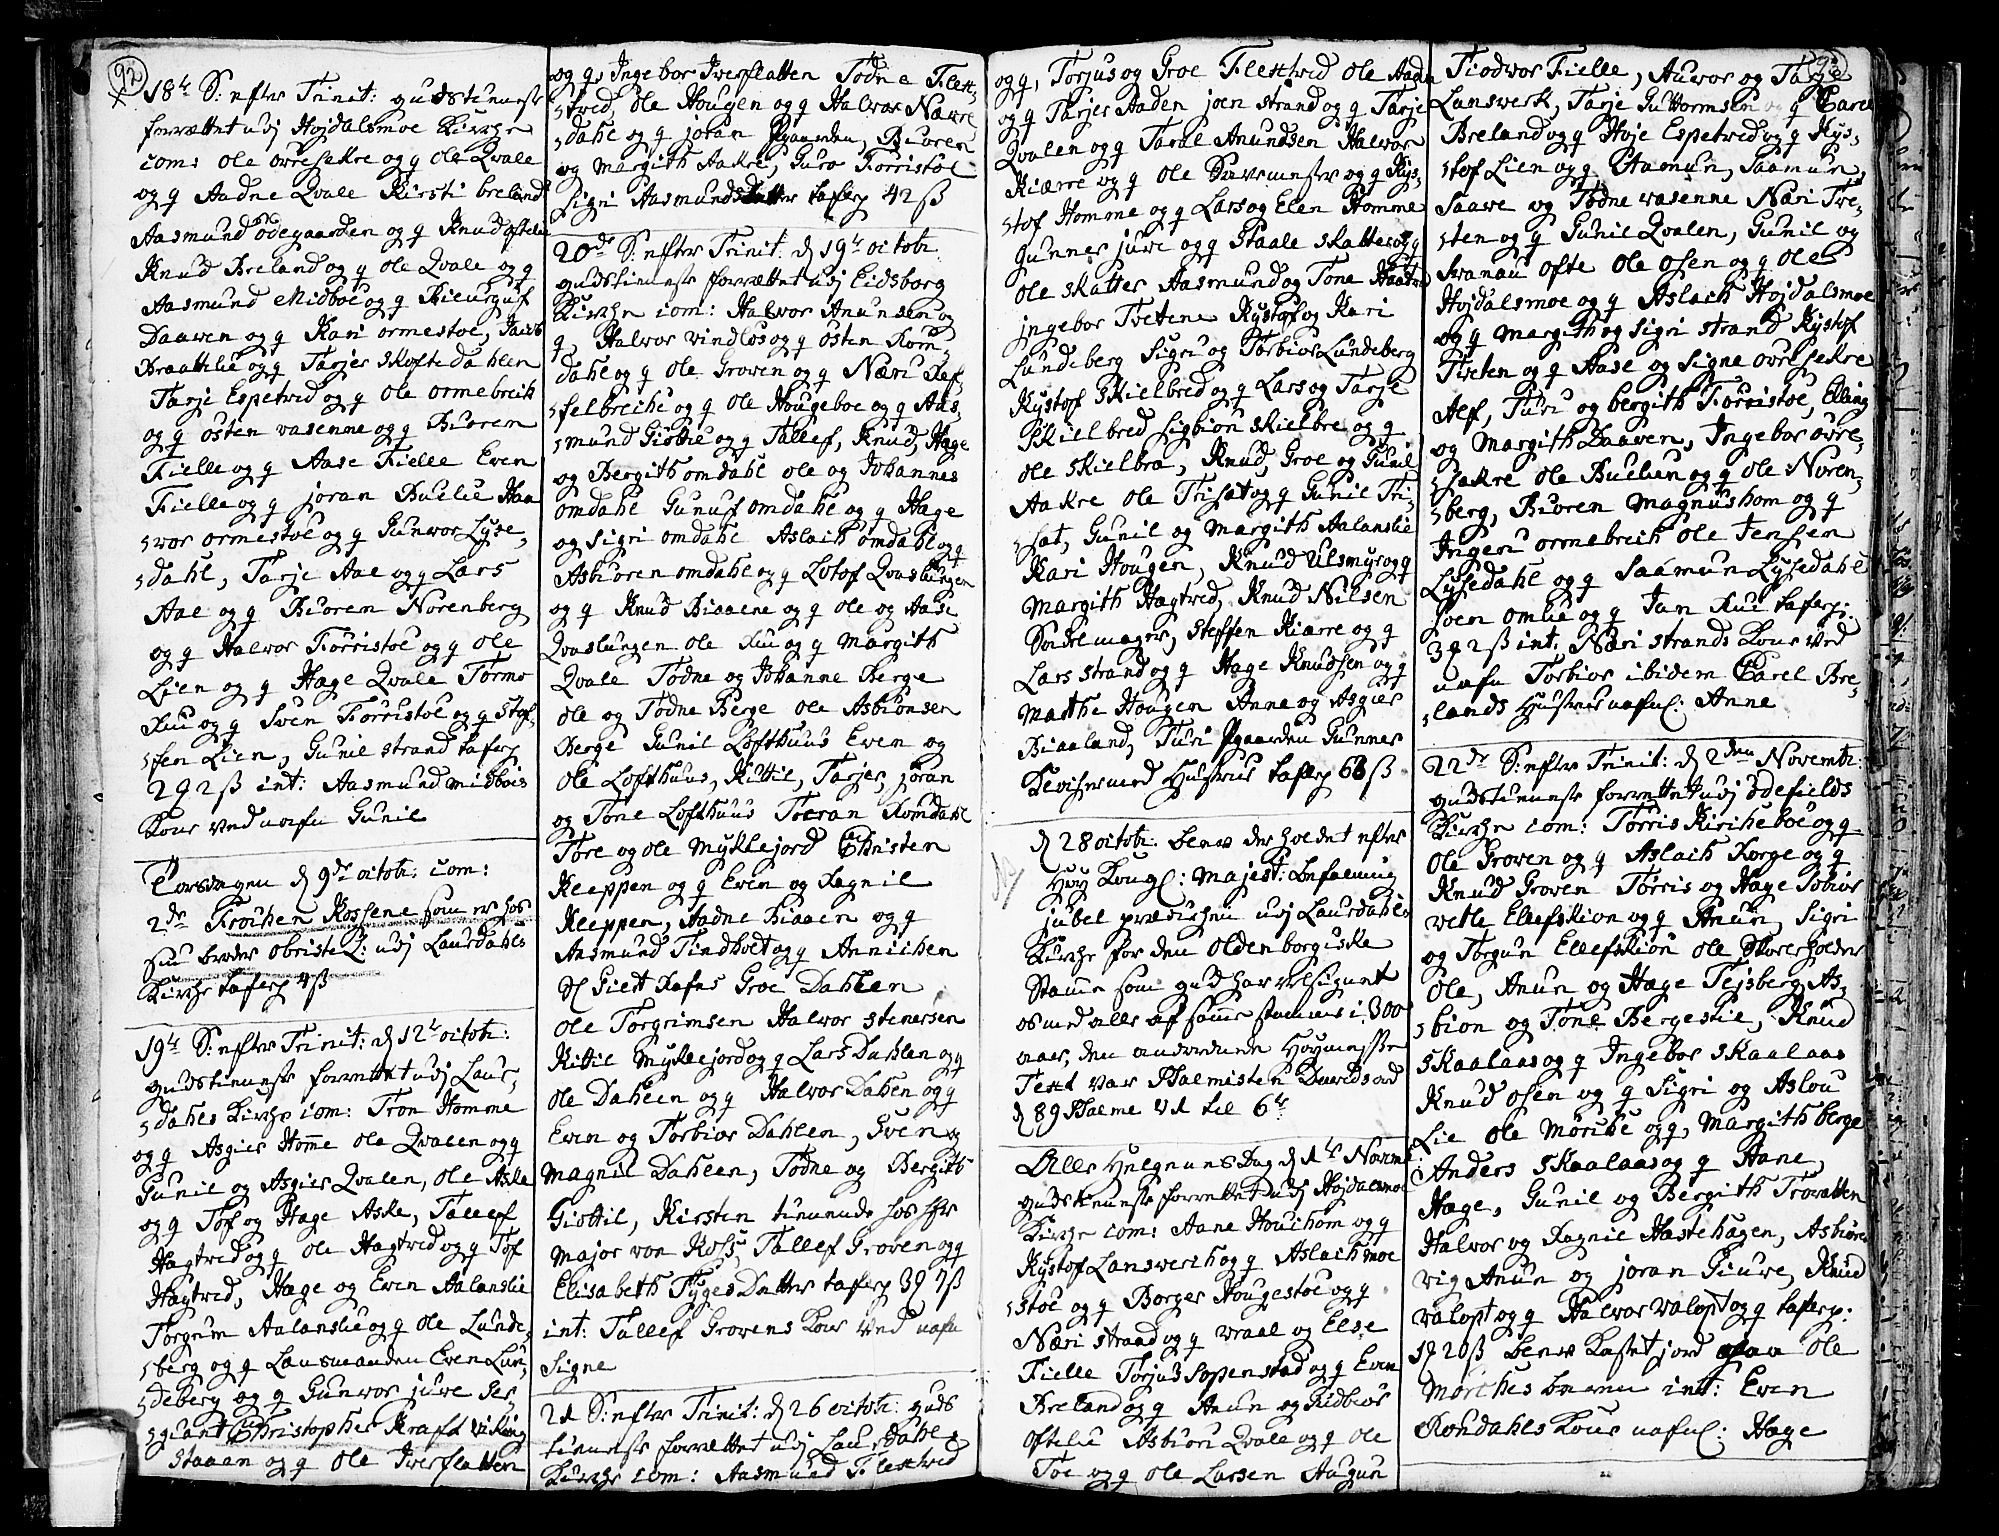 92
18de S: efter Trinit: gudstieneste
forrettet udj Høidalsmoe Kirche
com: ole øvresækre og q ole Qvale
og q Aadne Qvale Kirsti breland
Aasmund ødegaarden og q Knud ofteli
Knud Breland og q ole Qvale og q
Aasmund Midboe og q Kieurguf
Daaven og q Kari ormestoe, Jacob
Braatlie og q Tarjer Skoftedahlen
Tarje Espetved og q ole ormebrech
og q østen vasenne og q Biørem
Fielle og q Aase Fielle Even
Fielle og q joran Buelie Haa
vor ormestoe og q Gunvor Lyse,
dahl, Tarje Aae og q Lars
Aae og q Biørem Norenberg
og q Halvor Torristoe og q ole
Lien og q Hæge Qvale Tormo
Rui og q Sven Torristoe og q Stef,
fen Lien, Gunil strand taferp
2q 2ß int: Aasmund midbøes
Kone ved nafn Gunil
Torsdagen d 9de octob: com:
2de Frøchen Rossene som er hos
sin broder obristel: udj Laurdahls
Kirche taferp 4ß
19de S: efter Trinit: d 12te octob:
gudstieneste forrettet udj Laur,
dahls Kirche com: Tron Homme
og q Asgier Homme ole Qvalen og q
Gunil og Asgier Qvalen, ole Aske
og q Tof og Hæge Aske, Tallef
Hagtved og q ole Hagtved og q Tof
Hagtved, Hæge og Even Aalanslie
Torgrim Aalanslie og q ole Lunde,
berg og q Lansmanden Even Lun,
deberg og q Gunvor juve Ser,
giant Christopher Kraft Viking
Staaen og q Ole Iverslatten
og q, Ingebor Iverslatten Todne Flekt,
tved, ole Hougen og q Halvor Navre
dahl og q joran Pgaarden, Biøren
og Margith Aakre, Guro Torristoe
Sigri Aasmundsdatter taferp 42ß
20de S: efter Trinit: d 19de octob:
gudstieneste forrettet udj Eidsborg
Kirche com: Halvor Anunsen og
q, Halvor Vindlos og q østen Rom,
dahl og q ole Groven og q Næri Kaf,
felbrecke og q ole Hougeboe og q Aas,
mund Giøtil og q Tallef, Knud, Hæge
og Bergith omdahl ole og Johannes
omdahl Gunuf omdahl og q Hæge
og Sigri omdahl Aslach omdahl og q
Asbiøren omdahl og q Lotof Qvaslungen
og q Knud Biaaene og q ole og Aase
Qvaslungen ole Rui og q Margith
Qvale Todne og Johanne Berge
ole og Todne Berge ole Asbiønsen
Berge Gunil Lofthuus Even og
Ole Lofthuus, Kittil, Tarjer, joran
og Tone Lofthuus Toeran Romdahl
Tore og ole Myklejord Christen
Kleppen og q Even og Ragnil
Kleppen, Aadne Biaaen og q
Aasmund Tindholt og q Annichen
Giert Rafns Groe Dahlen
Ole Torgrimsen Halvor Stenersen
Kittil Myklejord og q Lars Dahlen og q
Ole Dahlen og q Halvor Dahlen og q
Even og Torbior Dahlen, Sven og
Magnil Dahlen, Todne og Bergith
Giøttil, Kirsten tienende hos Hr
Major von Ross, Tallef Groven og q
Elisabeth Tygesdatter taferp 3q 7ß
int: Tallef Grovens Kone ved nafn
Signe
21 S: efter Trinit: d 26 octob: guds
tieneste forrettet udj Laurdahls
Kirche com: Aasmund Flekstved
og q, Torjus og Groe Flekstved Ole Aaden
og q Tarjer Aaden joen strand og q Tarje
Qvalen og q Taral Anundsen Halvor
Kiærre og q ole og q Kys,
stof Homme og q Lars og Elen Homme
Gunner juve og q Staale Skatter og q
Ole Skatter Aasmund og Tone Haatved
jngebor Tvetene Kystof og Kari
Lundeberg Sigri og Torbior Lundeberg
Kystof Skielbred og q Lars og Tarje
Skielbred Sigbiøn Skielbre og q
ole Skielbra, Knud, Groe og Gunil
Aakre ole Trisæt og q Gunil Tri,
sæt, Gunil og Margith Aalanslie
Kari Hougen, Knud Ulsmyr og q
Margith Hagtved, Knud Nilsen
Steffen Kiærre og q
Lars strand og q Hæge Knudsen og q
Marthe Hougen Anne og Asgier
Biaaland, Turi Pgaarden Gunner
med Hustrue taferp 6ß
d 28 octob: blev der holdet efter
Høy Kongel: Majest: befaling
jubel prædichen udj Laurdahls
Kirche for den Oldenborgiske
Stamme som gud har velsignet
os med alle af samme stamme i 300
aar, den anordnede Høymesse
Text var Psalmisten Davids ord
d 89 Psalme v 1 til 6te
Alle Helgens Dag d 1te Novemb:
gudstieneste forrettet udj Høidalsmoe
Kirche com: Aane Houchom og q
Kystof Lanswerch og q Aslach moe
stoe og q Borger Hougestoe og q
Næri strand og q wraal og Else
Fielle Torjus Sopenstad og q Even
Breland og q Anun og Kidbior
Oftelie Asbiøri Qvale og q ole
Toe og q Ole Larsen Augun
Tiodvor Fielle, Auwor og Tarje
Lanswerk, Tarje Guttormsen og q Carel
Breland og q Høje Espetved og q Kys,
stof Lien og q Aamun, Saamun,
Saave og Todne vasenne Næri Tve,
ten og q Gunil Qvalen, Gunil og
Svanau Ofte ole Osen og q ole
Høidalsmoe og q Aslach Høidalsmoe
og q Margith og Sigri strand Kystof
Tveten og q Aase og Signe øvresækre
Alf, Turi og bergith Torristoe, Elling
og Margith Daaven, Ingebor øvre,
sækre ole Buelien og q ole Noren,
berg, Biøren Magnushom og q
Ingeri ormebrech ole Jensen
Lysedahl og q Saamun Lysedahl
joen omlie og q Jan Rui taferp:
3q 2ß int: Næri strands Kone ved
nafn Torbior ibidem Carel Bre,
lands Hustrue nafnl: Anne
22de S: efter Trinit: d 2den Novemb:
gudstieneste forrettet udj ødefields
Kirche com: Torris Kircheboe og q
Ole Groven og q Aslach Korge og q
Knud Groven Torris og Hæge
vetle Ellefskion og q Anun, Sigri
og Torgun Ellefskion ole Skoreholder
Ole, Anun og Hæge Tejsberg As,
bion og Tone Bergestie, Knud
Skaalaas og q Ingebor Skaalaas
Knud osen og q Sigri og Aslou
Lie Ole Mørche og q, Margith berge
Anders Skaalaas og q Aane
Hæge, Gunil og Bergith Trovatten
Halvor og Ragnil Hastehagen, Asbiøren
vig Anun og joran Giuve, Knud
valopt og q Halvor valopt og q taferp:
1q 20ß blev Kastet jord paa ole
Mørches barn int: Even
Rondahls Kone nafnl: Hæge